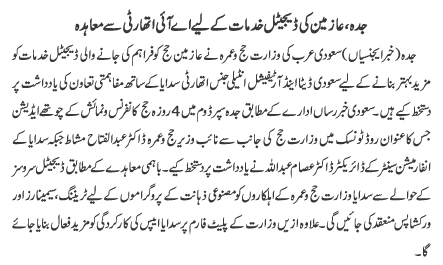 جدہ، عازمین کی ڈیجیٹل خدمات کے لیے اے آئی اتھارٹی سے معاہدہ
جدہ (خبر ایجنسیاں) سعودی عرب کی وزارت حج وعمرہ نے عازمین حج کو فراہم کی جانے والی ڈیجیٹل خدمات کو
مزید بہتر بنانے کے لیے سعودی ڈیٹا اینڈ آرٹیفیشل انٹیلی جنس اتھارٹی سدایا کے ساتھ مفاہمتی تعاون کی یادداشت پر
دستخط کیے ہیں۔ سعودی خبر رساں ادارے کے مطابق جدہ سپر ڈوم میں 4 روزہ حج کانفرنس و نمائش کے چوتھے ایڈیشن
جس کا عنوان روڈ ٹو نسک میں وزارت حج کی جانب سے نائب وزیر حج وعمرہ ڈاکٹر عبدالفتاح مشاط جبکہ سدایا کے
انفارمیشن سینٹر کے ڈائریکٹر ڈاکٹر عصام عبداللہ نے یادداشت پر دستخط کیے۔ باہمی معاہدے کے مطابق ڈیجیٹل سروسز
کے حوالے سے سدایا وزارت حج وعمرہ کے اہلکاروں کو مصنوعی ذہانت کے پروگراموں کے لیے ٹریننگ، سیمینارز اور
ورکشاپس منعقد کی جائیں گی۔ علاوہ ازیں وزارت کے پلیٹ فارم پر سدایا ایپس کی کارکردگی کو مزید فعال بنایا جائے
گا۔